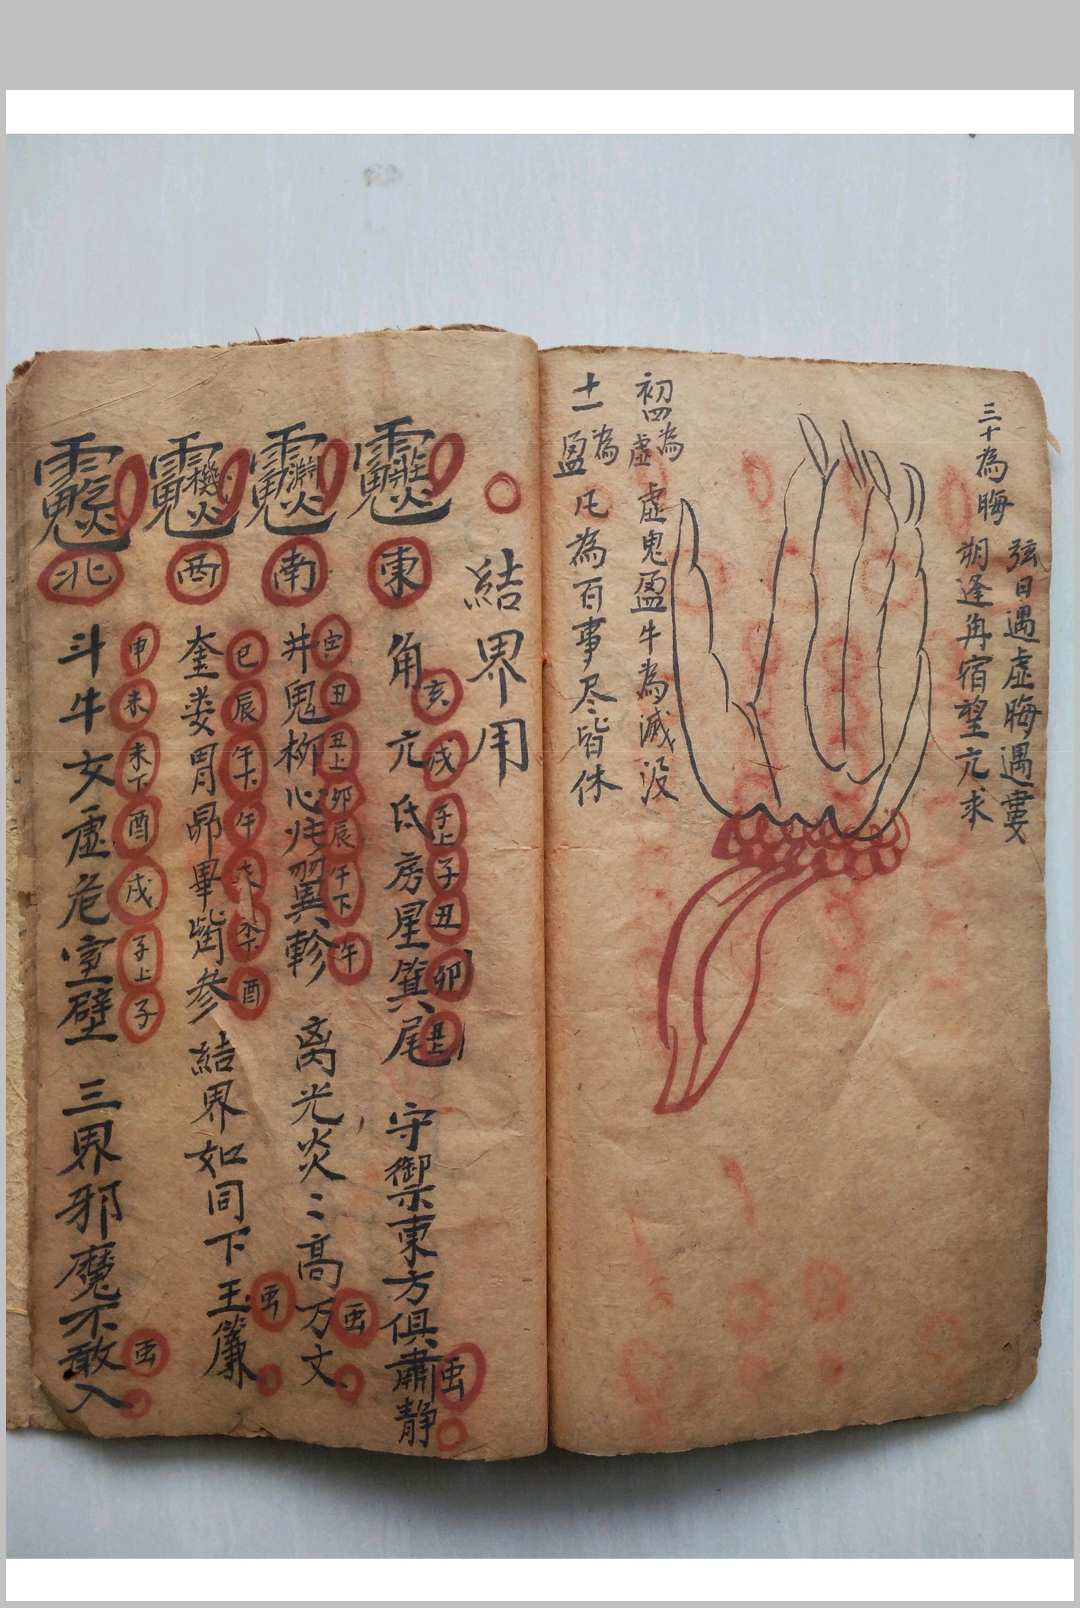 三十為晦
弦日遇虛晦遇婁
朔逢角宿望亢求
初四為虛
虛鬼盈牛為滅没
十一為盈
凡為百事尽皆休
結界用
東
角亢氐房星箕尾
亥戌子上子丑卯丑上
守禦東方俱肅静
南
井鬼柳心星翼軫
丑丑上卯辰午下午
离光炎〻高万丈
西
奎娄胃昴畢觜參
巳辰午下午未酉
結界如同下玉簾
北
斗牛女虛危室壁
申未未下酉戌子上子
三界邪魔不敢入